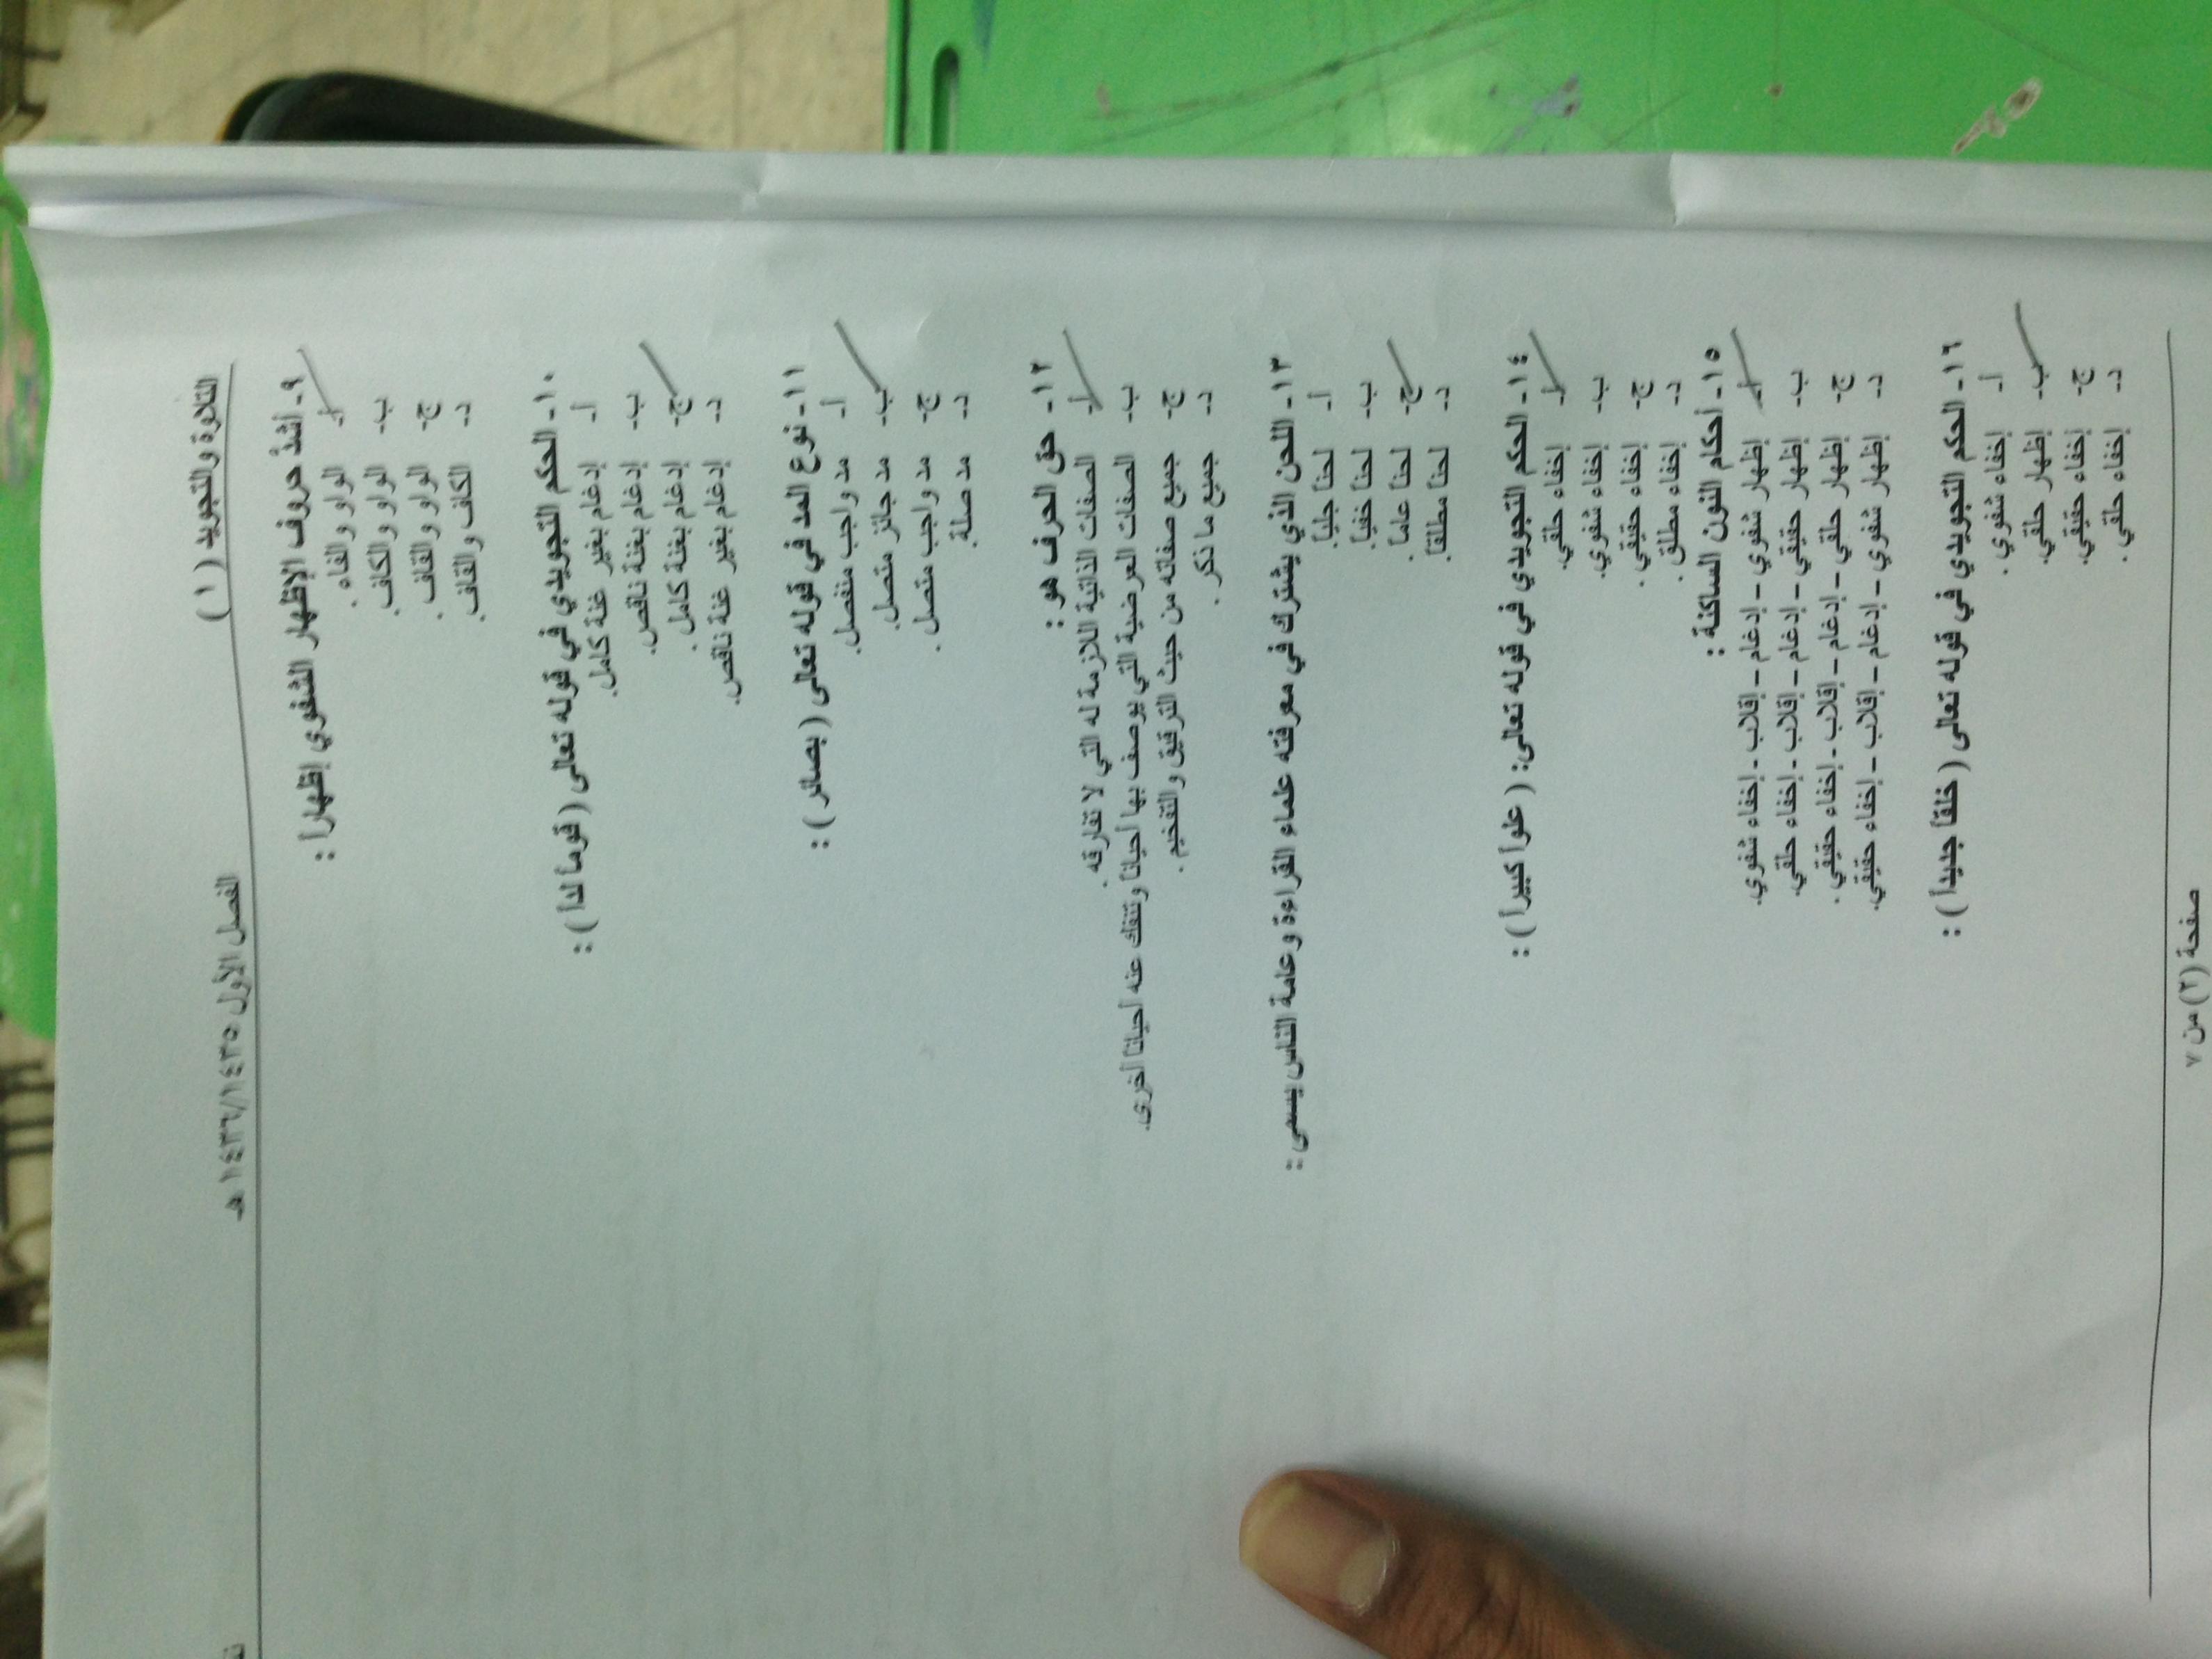 التلاوة والتجويد ( ١ )
الفصل الأول ١٤٣٦/١٤٣٥ هـ
٩- أشدُّ حروف الإظهار الشفوي إظهاراً :
أ- الواو والفاء .
ب- الواو والكاف.
ج- الواو والقاف .
د- الكاف والقاف.
١٠- الحكم التجويدي في قوله تعالى ( قوماً لداً ) :
أ- إدغام بغير غنة كامل.
ب- إدغام بغنة ناقص.
ج- إدغام بغنة كامل .
د- إدغام بغير غنة ناقص.
١١- نوع المد في قوله تعالى ( بصائر ) :
أ- مد واجب منفصل.
ب- مد جائز متصل.
ج- مد واجب متصل .
د- مد صلة.
١٢- حق الحرف هو :
أ- الصفات الذاتية اللازمة له التي لا تفارقه .
ب- الصفات العرضية التي يوصف بها أحياناً وتنفك عنه أحياناً أخرى.
ج- جميع صفاته من حيث الترقيق والتفخيم .
د- جميع ما ذكر .
١٣- اللحن الذي يشترك في معرفته علماء القراءة وعامة الناس يسمى :
أ- لحناً جلياً.
ب- لحناً خفياً.
ج- لحناً عاماً.
د- لحناً مطلقاً.
١٤- الحكم التجويدي في قوله تعالى: ( علواً كبيراً ) :
أ- إخفاء حلقي.
ب- إخفاء شفوي.
ج- إخفاء حقيقي .
د- إخفاء مطلق .
١٥- أحكام النون الساكنة :
أ- إظهار شفوي – إدغام – إقلاب - إخفاء شفوي.
ب- إظهار حقيقي – إدغام – إقلاب - إخفاء حلقي.
ج- إظهار حلقي – إدغام – إقلاب - إخفاء حقيقي .
د- إظهار شفوي – إدغام – إقلاب – إخفاء حقيقي.
١٦- الحكم التجويدي في قوله تعالى ( خلقاً جديداً ) :
أ- إخفاء شفوي .
ب- إظهار حلقي.
ج- إخفاء حقيقي.
د- إخفاء حلقي .
صفحة (٢) من ٧